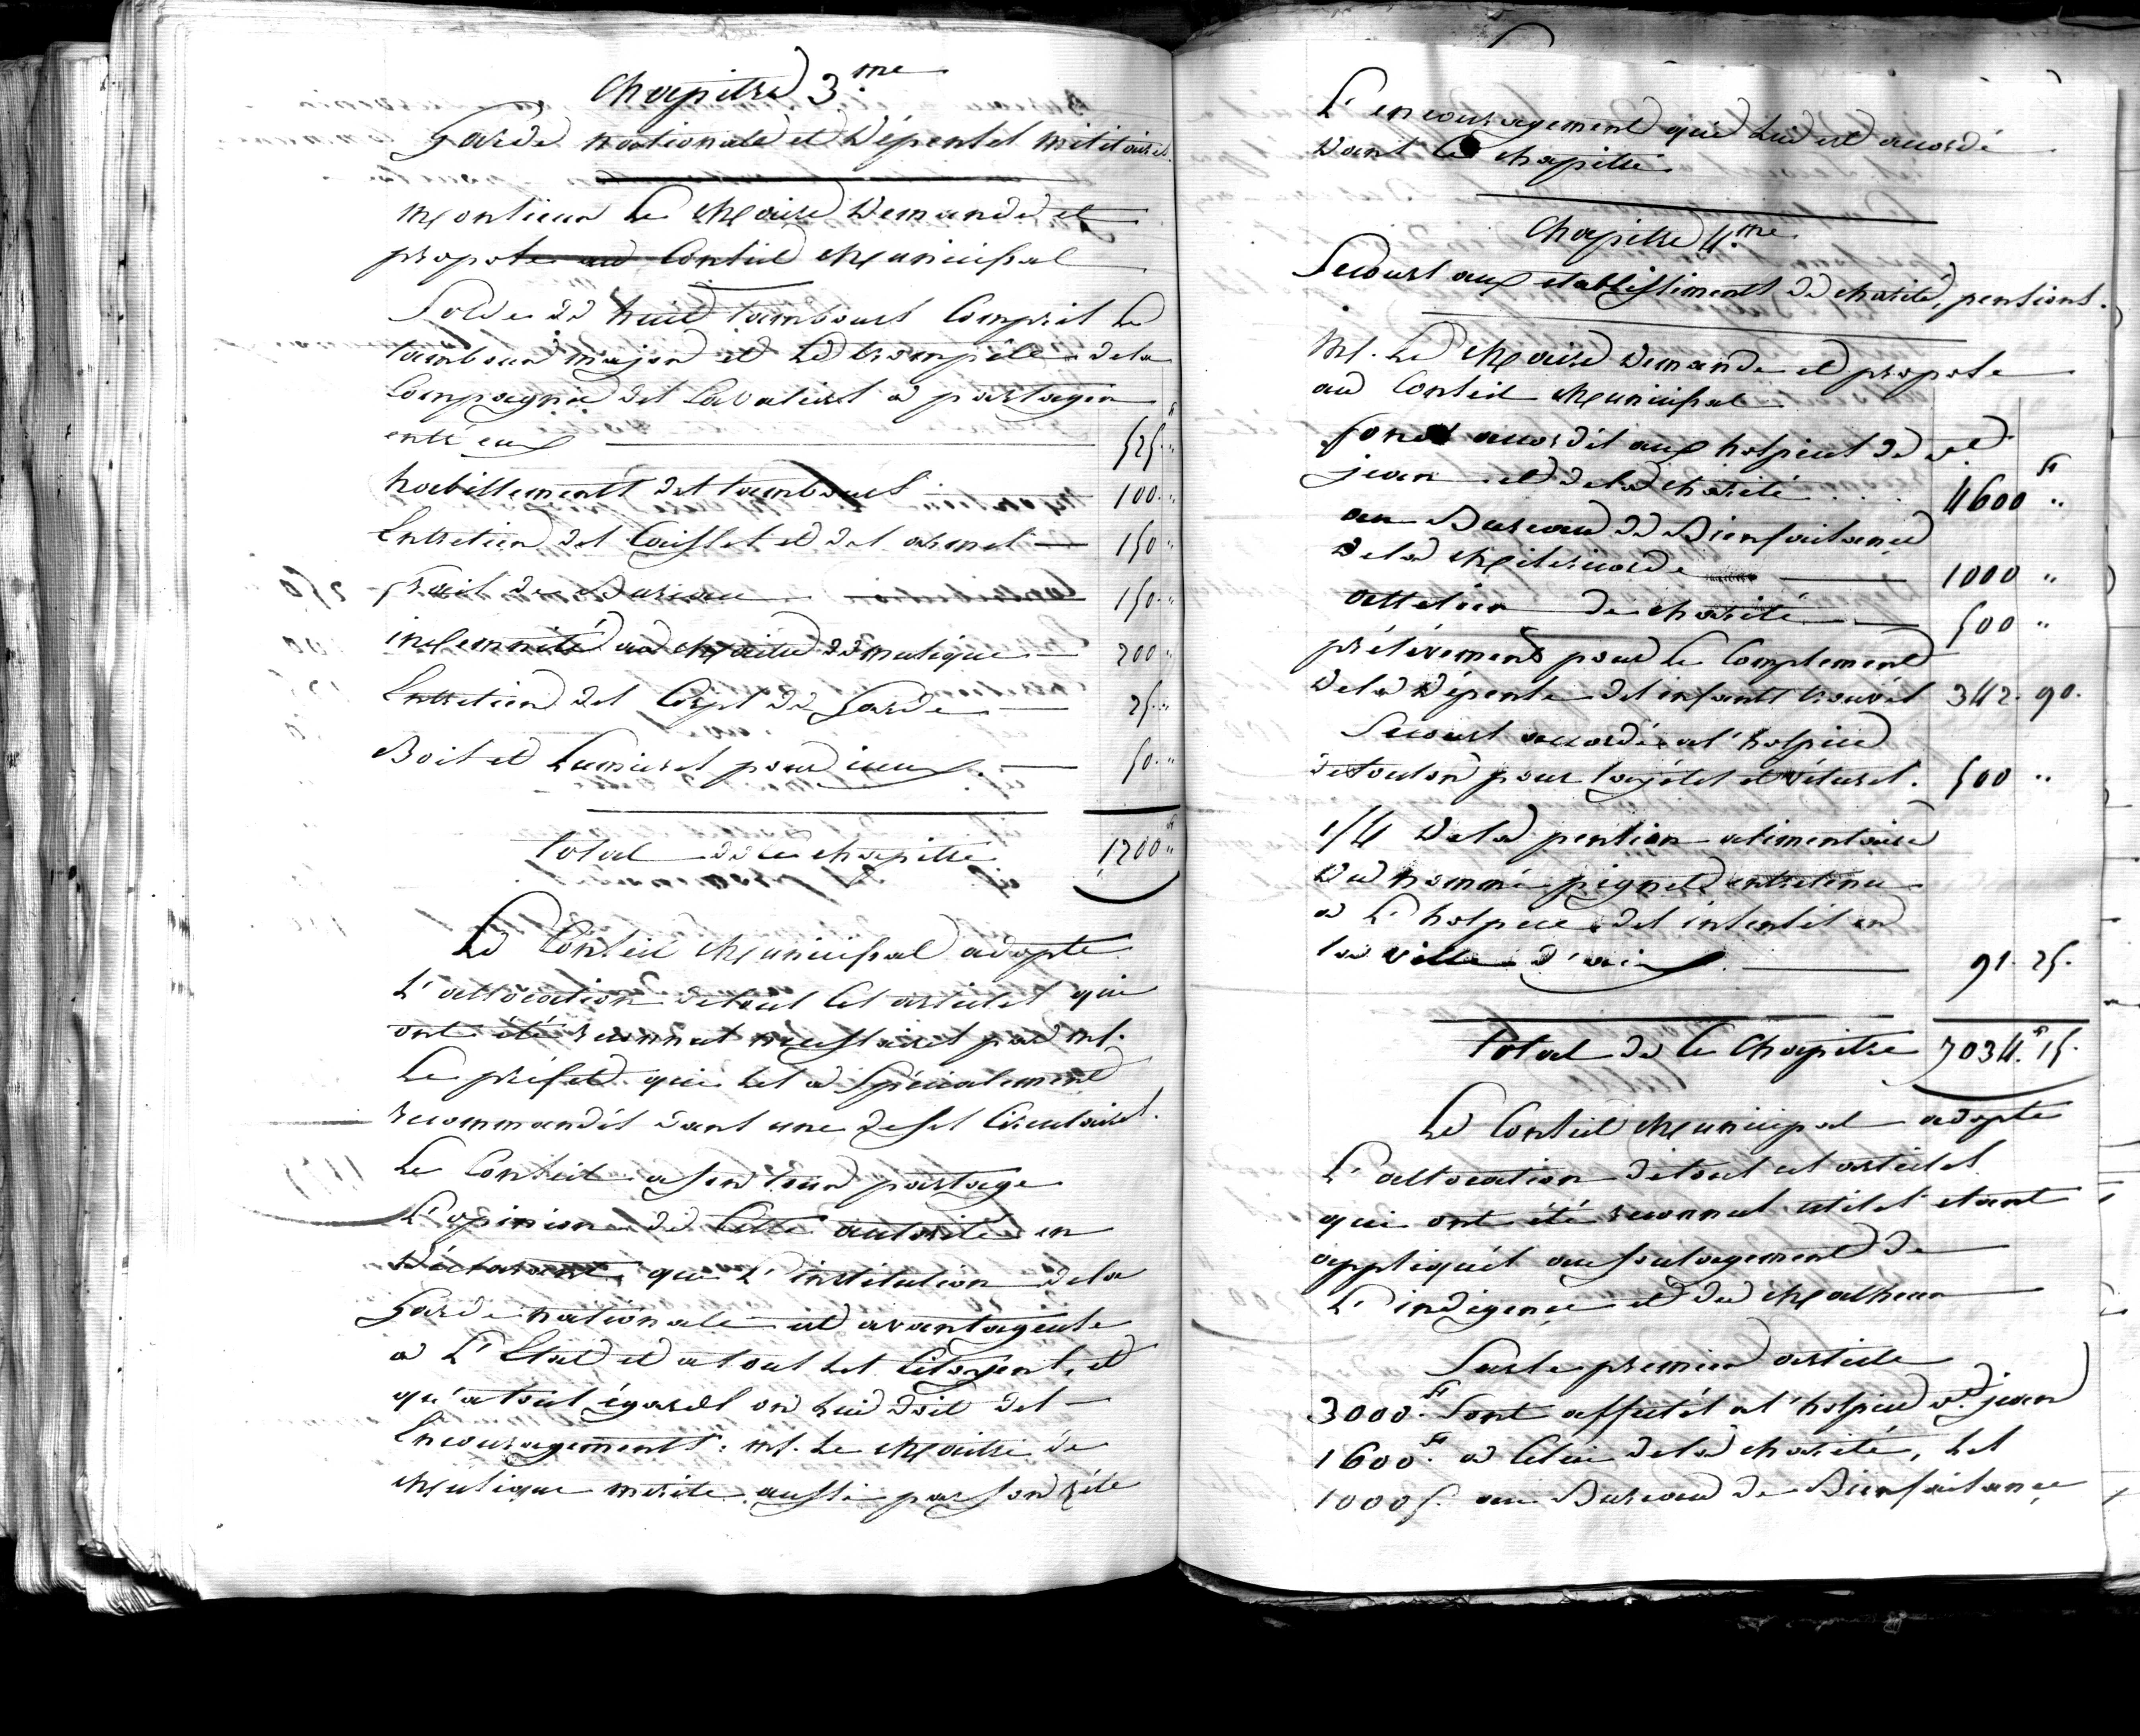 Chapitre 3.me
Garde nationale et Dépenses militaires.
Monsieur Le Maire Demande et
propose au Conseil Municipal
Solde de huit tambours Compris Le
tambour major et Le trompête dela
Compagnie des Cavaliers a partager
entr'eux 525. "
habillements des tambours 100. "
Entretien des Caisses et des armes 150 "
frais de Bureau 150. "
indemnité au Maitre de musique 200 "
Entretien des Corps de Garde 25. "
Bois et Lumieres pour iceux. 50. "
total de ce chapitre 1,200 f "
Le Conseil Municipal adopte
L'allocation detous ces articles qui
ont été reconnus necessaires par M.
Le préfet qui les a Spécialement
recommandés dans une deses Circulaires.
Le Conseil a son tour partage
L'opinion de Cette autorité en
Déclarant que L'institution dela
Garde nationale est avantageuse
a L'Etat et atous Les Citoyens, et
qu'atous égards on lui doit des
Encouragements. M. Le Maitre de
Musique mérite aussi par son zéle
L'encouragement qui Lui est accordé
Dans Ce chapitre
Chapitre 4.me
Secours aux etablissements de charité, pensions.
M. Le Maire Demande et propose
au Conseil Municipal
fonds accordés aux hospices de st.
jean et dela charité 4600 f "
au Bureau de Bienfaisance
Dela Misericorde 1000 "
attelier de charité 500 "
prélévement pour Le Complement
Dela Dépense des enfants trouvés 342. 90.
Secours accordés a l'hospice
detoulon pour layétes et vétures. 500 "
1/4 Dela pension alimentaire
Du nommé pignet entretenu
a L'hospice des insensés en
la ville d'aix 91. 25.
Total de Ce Chapitre 7034. f 15.
Le Conseil Municipal adopte
L'allocation detous ces articles
qui ont été reconnus utiles etant
appliqués au soulagement de
L'indigence et du Malheur
Sur le premier article
3000. f Sont affectés a l'hospice st. jean
1600. f a Celui dela charité, Les
1000 f. au Bureau de Bienfaisance